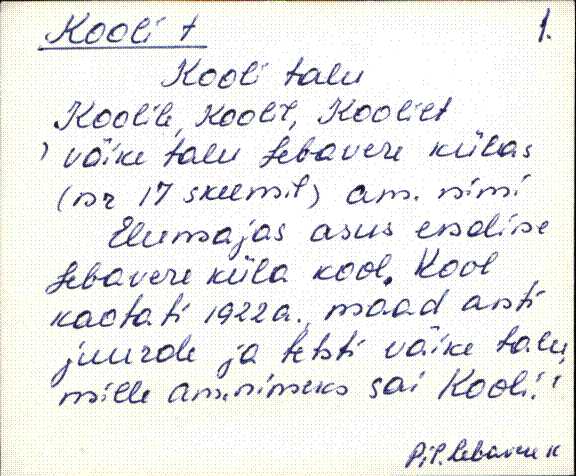 Kooli t 1.
Kooli talu
Koolile, Koolil, Koolist
väike talu Lebavere külas
(nr 17 skeemil) am. nimi
Elumajas asus endine
Lebavere küla kool. Kool
kaotati 1922 a., maad anti
juurde ja tehti väike talu,
mille am. nimeks sai Kooli.
Pil. Lebavere k